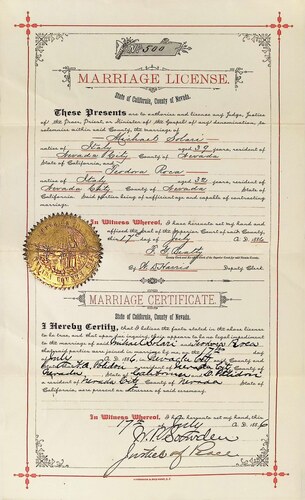 No 500
MARRIAGE LICENSE.
State of California, County of Nevada.
These Presents are to authorize and license any Judge, Justice
of the Peace, Priest, or Minister of the Gospel of any denomination, to
solemnize within said County, the marriage of
Michael Solari
native of Italy aged 39 years, resident of
Nevada City County of Nevada
State of California, and
Teodora Rosa
native of Italy aged 32 years, resident of
Nevada City County of Nevada State of
California. Said parties being of sufficient age and capable of contracting
marriage.
In Witness Whereof, I have hereunto set my hand and
affixed the Seal of the Superior Court of said County,
this 17 day of July A. D. 1886
By W D Harris Deputy Clerk.
MARRIAGE CERTIFICATE.
State of California, County of Nevada.
I Hereby Certify, that I believe the facts stated in the above license
to be true, and that upon due inquiry there appears to be no legal impediment
to the marriage of said Michael Solari and
that said parties were joined in marriage by me on the 17th day of
July 1886, in Nevada City said County and
that a resident of Nevada City County of
Nevada State of California
a resident of Nevada City County of Nevada State of
California, are present as witnesses of said ceremony.
In Witness Whereof, I have hereunto set my hand, this
17th July A. D. 1886
J. W. Snowden
Justice of Peace